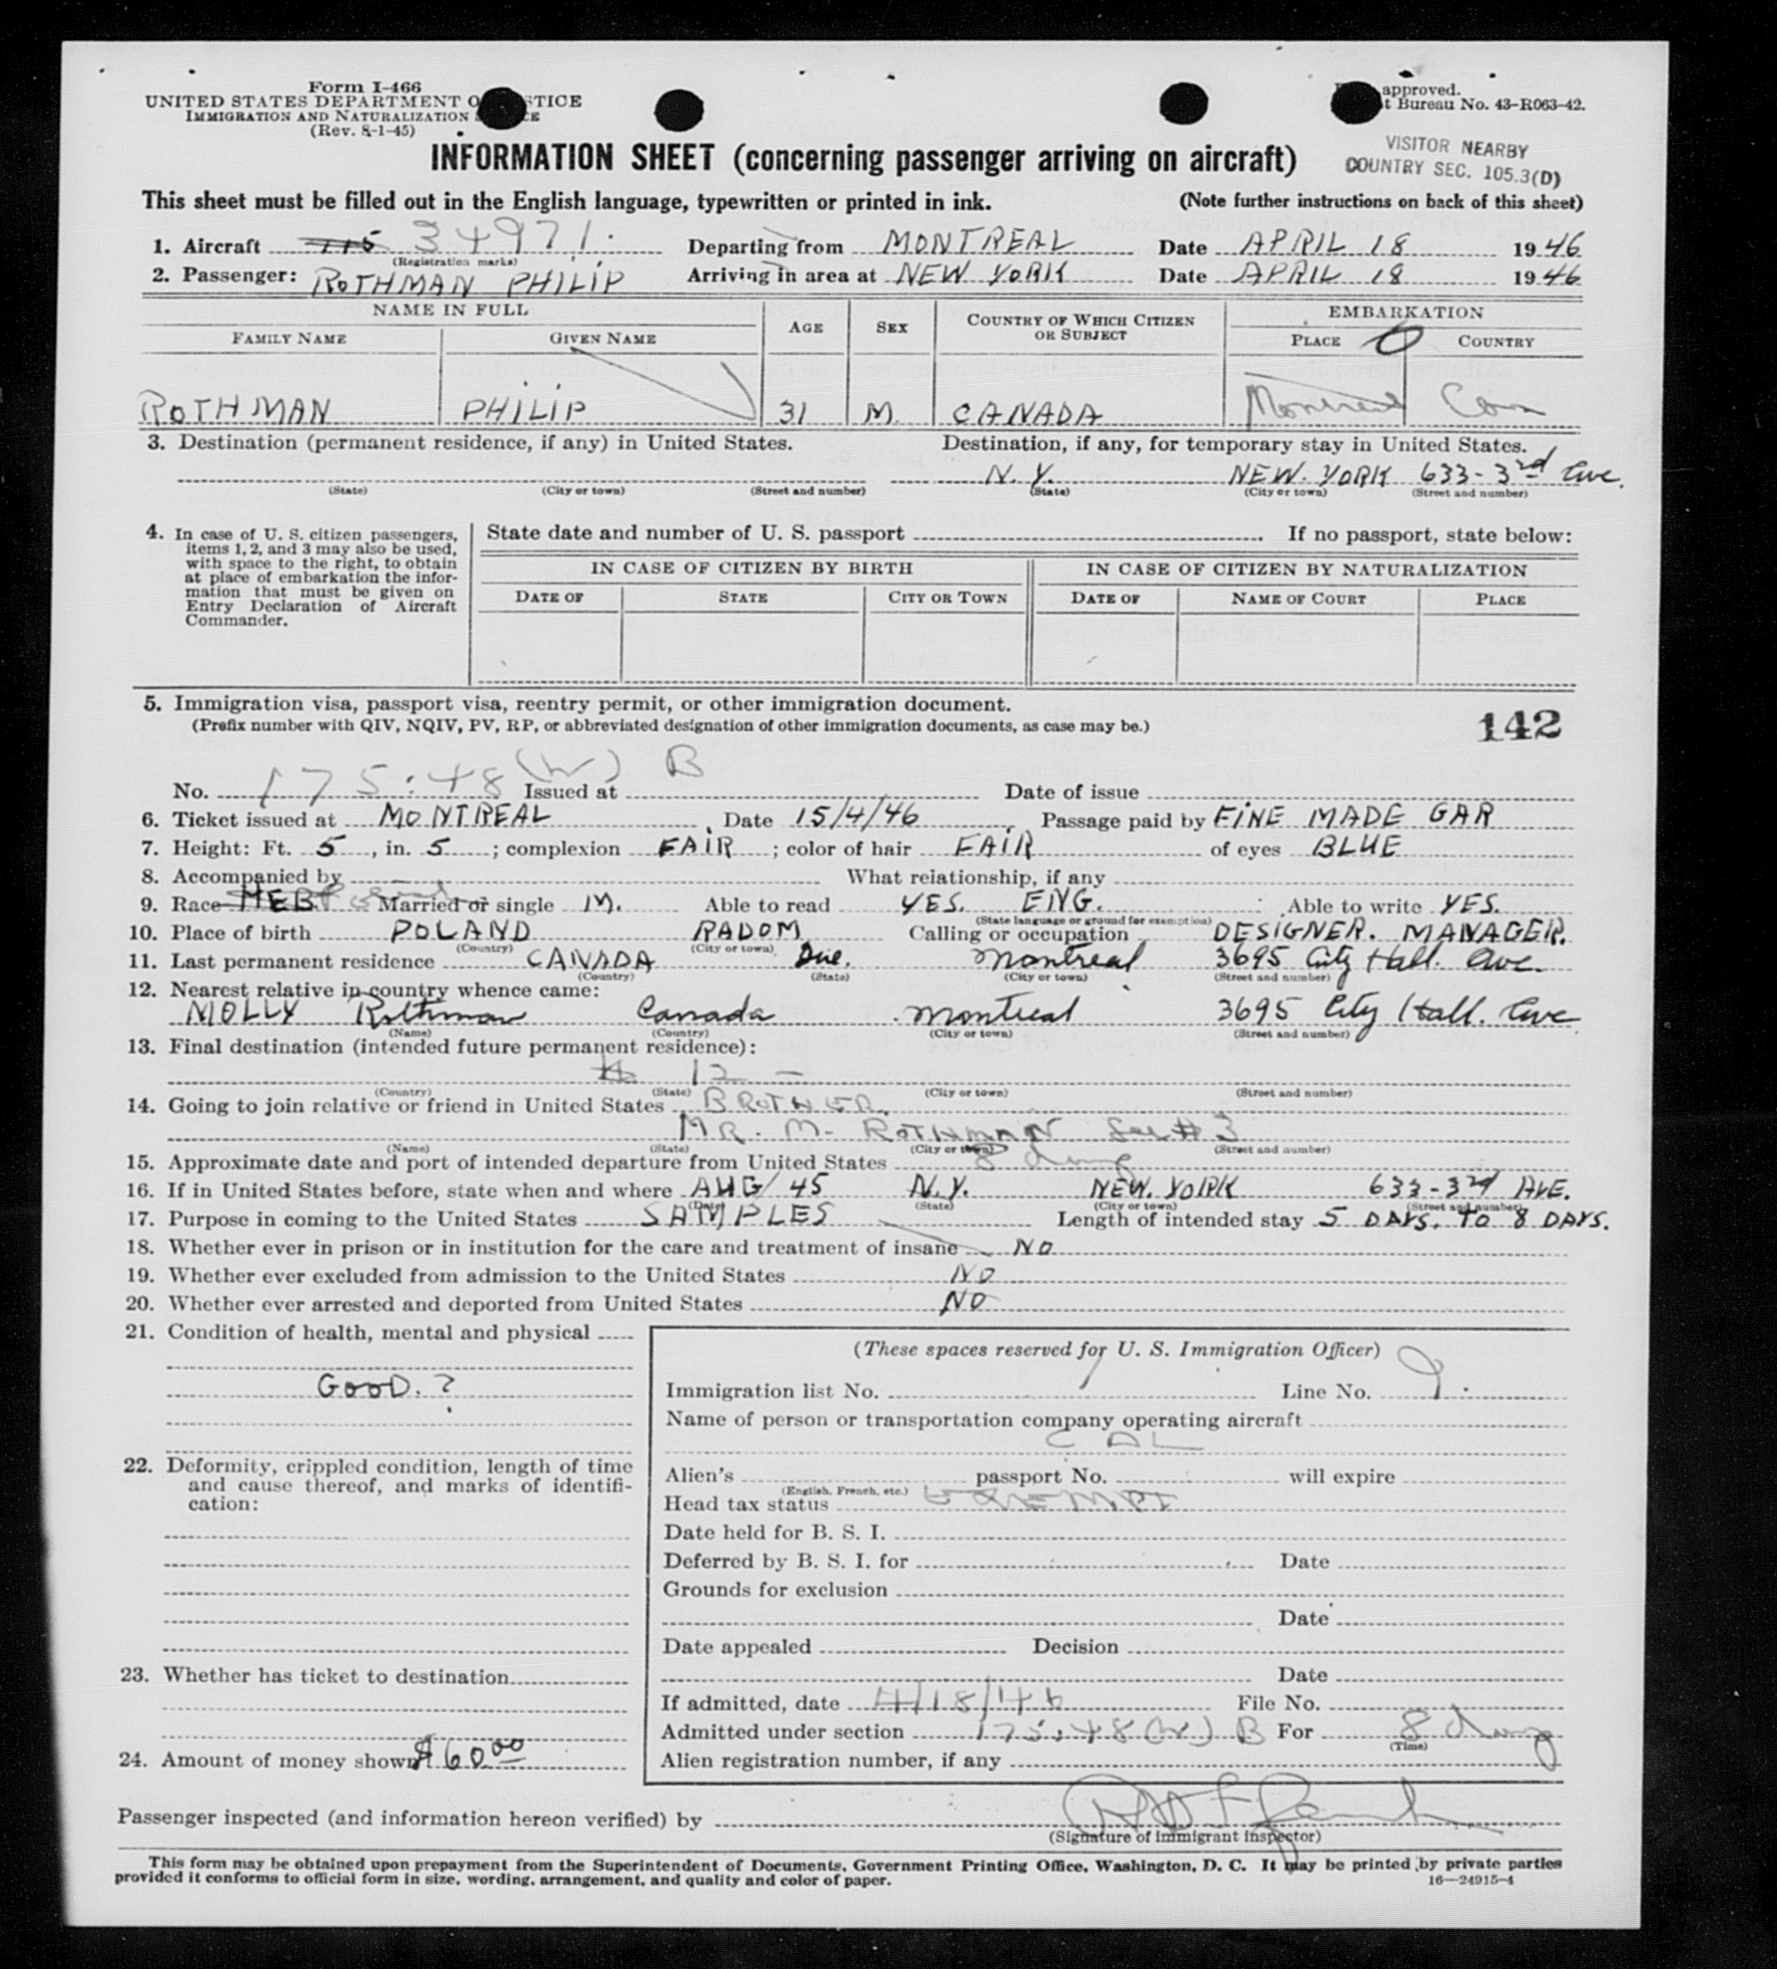 Form I-466
UNITED STATES DEPARTMENT O STICE
IMMIGRATION AND NATURALIZATION S CE
(Rev. 8-1-45)
approved.
t Bureau No. 43-R063-42.
VISITOR NEARBY
COUNTRY SEC. 105.3(D)
INFORMATION SHEET (concerning passenger arriving on aircraft)
This sheet must be filled out in the English language, typewritten or printed in ink. (Note further instructions on back of this sheet)
1. Aircraft 34971. Departing from MONTREAL Date APRIL 18 1946
(Registration marks)
2. Passenger: ROTHMAN PHILIP Arriving in area at NEW YORK Date APRIL 18 1946
NAME IN FULL AGE SEX COUNTRY OF WHICH CITIZEN OR SUBJECT EMBARKATION
FAMILY NAME GIVEN NAME PLACE COUNTRY
ROTHMAN PHILIP 31 M. CANADA Montreal Can
3. Destination (permanent residence, if any) in United States. Destination, if any, for temporary stay in United States.
N.Y. NEW. YORK 633-3rd Ave.
(State) (City or town) (Street and number) (State) (City or town) (Street and number)
4. In case of U. S. citizen passengers, items 1, 2, and 3 may also be used, with space to the right, to obtain at place of embarkation the information that must be given on Entry Declaration of Aircraft Commander.
State date and number of U. S. passport If no passport, state below:
IN CASE OF CITIZEN BY BIRTH IN CASE OF CITIZEN BY NATURALIZATION
DATE OF STATE CITY OR TOWN DATE OF NAME OF COURT PLACE
5. Immigration visa, passport visa, reentry permit, or other immigration document.
(Prefix number with QIV, NQIV, PV, RP, or abbreviated designation of other immigration documents, as case may be.)
142
No. 175:48 (W) B Issued at Date of issue
6. Ticket issued at MONTREAL, Date 15/4/46, Passage paid by FINE MADE GAR
7. Height: Ft. 5, in. 5; complexion FAIR; color of hair FAIR of eyes BLUE
8. Accompanied by — What relationship, if any
9. Race HEB. Married or single M. Able to read YES. ENG. Able to write YES.
(State language or ground for exemption)
10. Place of birth POLAND RADOM Calling or occupation DESIGNER. MANAGER.
(Country) (City or town)
11. Last permanent residence CANADA Que. Montreal 3695 City Hall. Ave.
(Country) (State) (City or town) (Street and number)
12. Nearest relative in country whence came:
MOLLY Rothman Canada Montreal 3695 City Hall. Ave
(Name) (Country) (City or town) (Street and number)
13. Final destination (intended future permanent residence):
# 12 —
(Country) (State) (City or town) (Street and number)
14. Going to join relative or friend in United States BROTHER.
MR. M. ROTHMAN See # 3
(Name) (State) (City or town) (Street and number)
15. Approximate date and port of intended departure from United States 8 days
16. If in United States before, state when and where AUG/45 N.Y. NEW. YORK 633-3rd AVE.
(Date) (State) (City or town) (Street and number)
17. Purpose in coming to the United States SAMPLES Length of intended stay 5 DAYS. TO 8 DAYS.
18. Whether ever in prison or in institution for the care and treatment of insane NO
19. Whether ever excluded from admission to the United States NO
20. Whether ever arrested and deported from United States NO
21. Condition of health, mental and physical
GOOD. ?
22. Deformity, crippled condition, length of time and cause thereof, and marks of identification:
23. Whether has ticket to destination
24. Amount of money shown $60.00
(These spaces reserved for U. S. Immigration Officer)
Immigration list No. 1 Line No. 9.
Name of person or transportation company operating aircraft
CAL
Alien's passport No. will expire
(English, French, etc.)
Head tax status EXEMPT
Date held for B. S. I.
Deferred by B. S. I. for Date
Grounds for exclusion
Date
Date appealed Decision
Date
If admitted, date 4/18/46 File No.
Admitted under section 175:48 (W) B For 8 days
(Time)
Alien registration number, if any
Passenger inspected (and information hereon verified) by
(Signature of immigrant inspector)
This form may be obtained upon prepayment from the Superintendent of Documents, Government Printing Office, Washington, D. C. It may be printed by private parties
provided it conforms to official form in size, wording, arrangement, and quality and color of paper. 16—24915-4